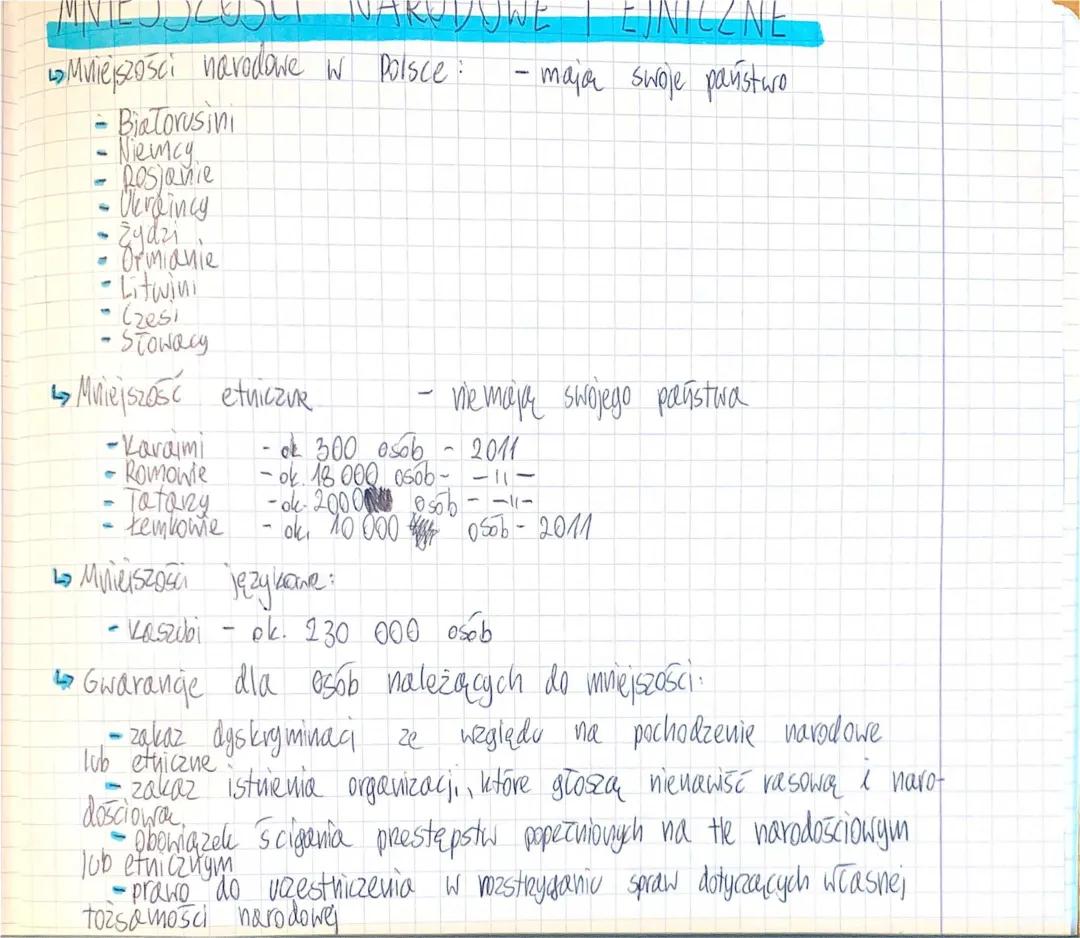 MNIEJSZOŚCI NARODOWE I ETNICZNE
↳ Mniejszości narodowe w Polsce: - mają swoje państwo
- Białorusini
- Niemcy
- Rosjanie
- Ukraińcy
- Żydzi
- Ormianie
- Litwini
- Czesi
- Słowacy
↳ Mniejszość etniczne - nie mają swojego państwa
- Karaimi - ok 300 osób - 2011
- Romowie - ok. 18 000 osób - -11-
- Tatarzy - ok. 2000 osób - -11-
- Łemkowie - ok. 10 000 osób - 2011
↳ Mniejszości językowe:
- Kaszubi - ok. 230 000 osób
↳ Gwarancje dla osób należących do mniejszości:
- zakaz dyskryminacj ze względu na pochodzenie narodowe
lub etniczne
- zakaz istnienia organizacji, które głoszą nienawiść rasową i naro-
dościową.
- obowiązek ścigania przestępstw popełnionych na tle narodościowym
lub etnicznym
- prawo do uczestniczenia w rozstrzyganiu spraw dotyczących własnej
tożsamości narodowej